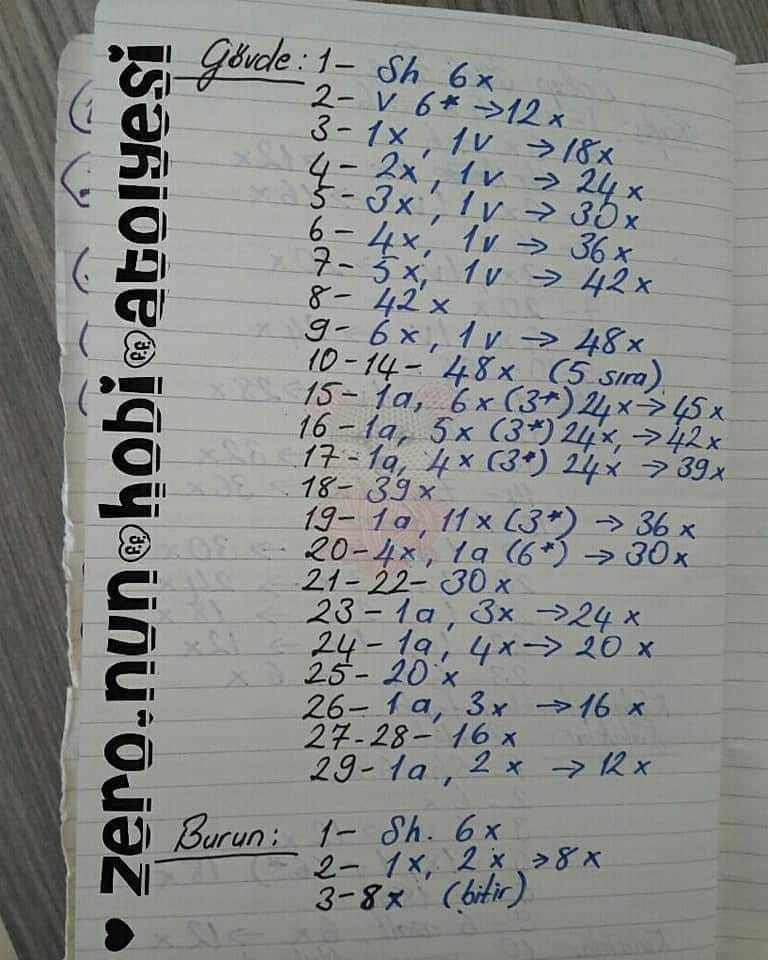 Gövde: 1- Sh 6x
2- v 6* → 12x
3- 1x, 1v → 18x
4- 2x, 1v → 24x
5- 3x, 1v → 30x
6- 4x, 1v → 36x
7- 5x, 1v → 42x
8- 42x
9- 6x, 1v → 48x
10-14- 48x (5 sıra)
15- 1a, 6x (3*) 24x → 45x
16- 1a, 5x (3*) 24x, → 42x
17- 1a, 4x (3*) 24x → 39x
18- 39x
19- 1a, 11x (3*) → 36x
20- 4x, 1a (6*) → 30x
21-22- 30x
23- 1a, 3x → 24x
24- 1a, 4x → 20x
25- 20x
26- 1a, 3x → 16x
27-28- 16x
29- 1a, 2x → 12x
Burun: 1- Sh. 6x
2- 1x, 2x → 8x
3- 8x (bitir)
zero.nun hobi atolyesi